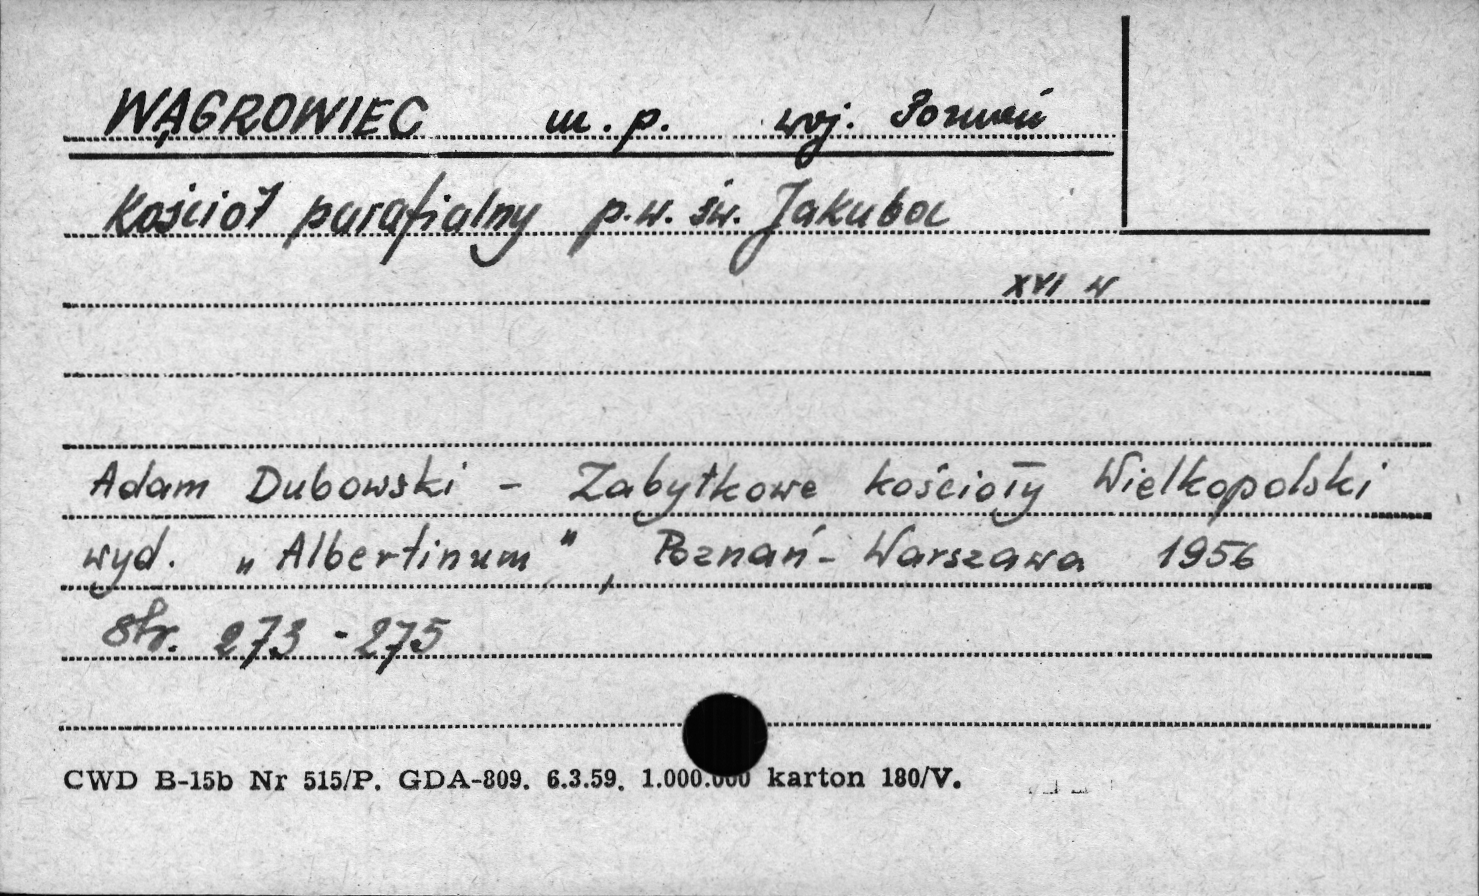 WĄGROWIEC m. p. woj. Poznań
Kościół parafialny p.w. św. Jakuba
XVI w
Adam Dubowski - Zabytkowe kościoły Wielkopolski
wyd. „Albertinum", Poznań - Warszawa 1956
str. 273 - 275
CWD B-15b Nr 515/P. GDA-809. 6.3.59. 1.000.000 karton 180/V.